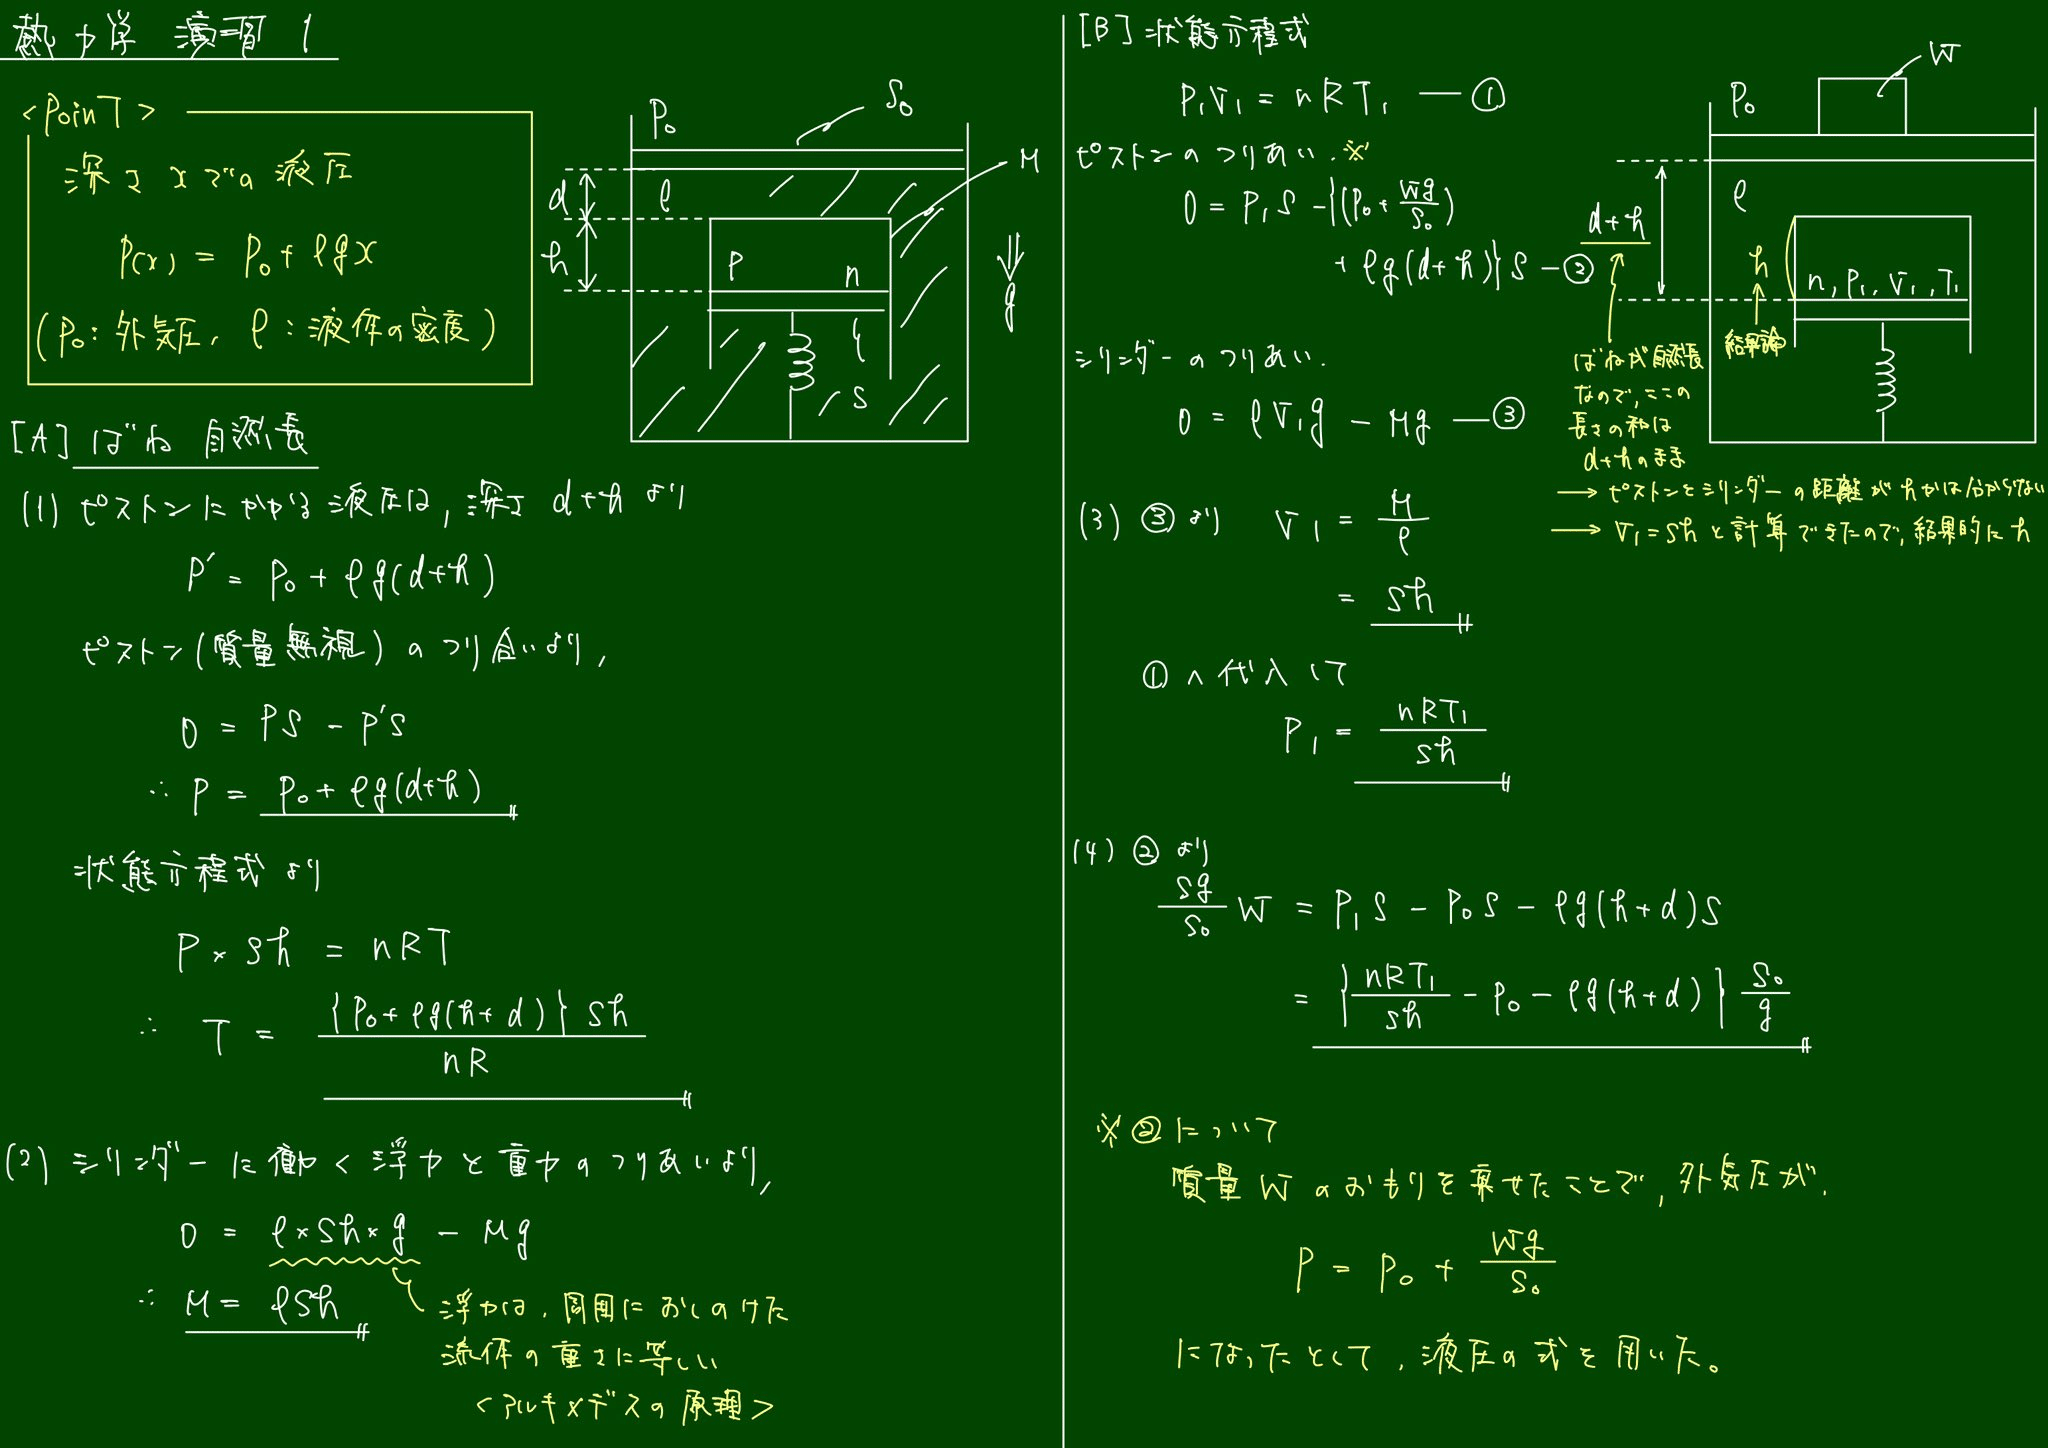 熱力学 演習 1
<Point>
深さ x での 液圧
P(x) = P₀ + ρgx
(P₀: 外気圧, ρ: 液体の密度)
P₀
S₀
M
d
ρ
h
P
n
g
S
[A] ばね 自然長
(1) ピストンにかかる液圧は, 深さ d+h より
P' = P₀ + ρg(d+h)
ピストン(質量無視)のつり合いより,
0 = PS - P'S
∴ P = P₀ + ρg(d+h)
状態方程式より
P × Sh = nRT
∴ T = {P₀ + ρg(h+d)} Sh / nR
(2) シリンダーに働く浮力と重力のつりあいより,
0 = ρ×Sh×g - Mg
∴ M = ρSh
浮力は, 周囲におしのけた
流体の重さに等しい
<アルキメデスの原理>
[B] 状態方程式
P₁V₁ = nRT₁ — ①
ピストンのつりあい. ※
0 = P₁S - {(P₀ + Wg/S₀)
+ ρg(d+h)}S — ②
シリンダーのつりあい.
0 = ρV₁g - Mg — ③
W
P₀
ρ
d+h
h
n, P₁, V₁, T₁
結果論
ばねが自然長
なので, ここの
長さの和は
d+hのまま
→ ピストンとシリンダーの距離がhかは分からない
→ V₁=Shと計算できたので, 結果的にh
(3) ③より V₁ = M/ρ
= Sh
①へ代入して
P₁ = nRT₁/Sh
(4) ②より
Sg/S₀ W = P₁S - P₀S - ρg(h+d)S
= {nRT₁/Sh - P₀ - ρg(h+d)} S₀/g
※②について
質量Wのおもりを乗せたことで, 外気圧が,
P = P₀ + Wg/S₀
になったとして, 液圧の式を用いた。